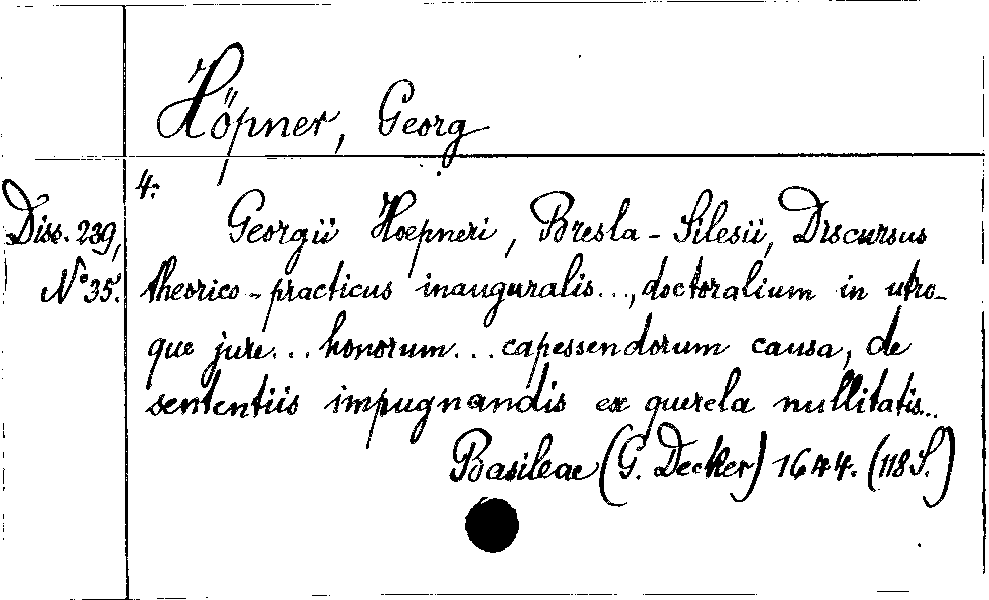 Höpner, Georg
4:
Diss. 239,
N° 35.
Georgii Hoepneri, Bresla-Silesii, Discursus
theorico-practicus inauguralis..., doctoralium in utro-
que jure... honorum... capessendorum causa, de
sententiis impugnandis ex querela nullitatis...
Basileae (G. Decker) 1644. (118 S.)